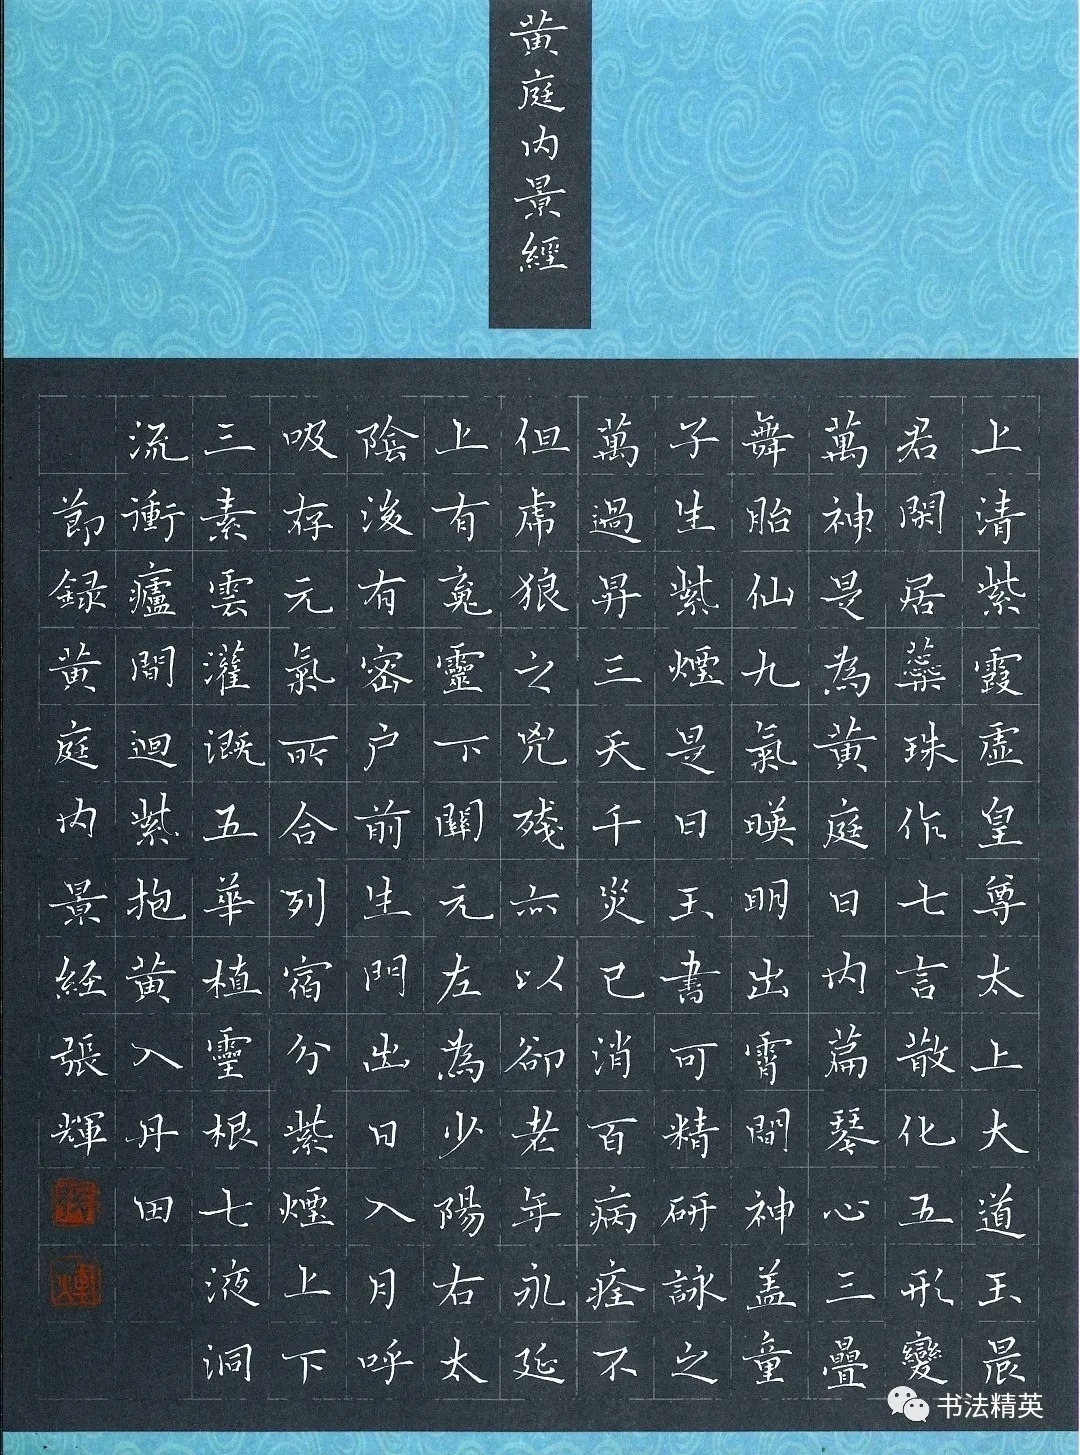 黄庭内景經
上清紫霞虛皇尊太上大道玉晨
君閑居蘂珠作七言散化五形變
萬神是為黄庭曰内篇琴心三疊
舞胎仙九氣暎明出霄間神盖童
子生紫煙是曰玉書可精研詠之
萬過昇三天千災已消百病痊不
但虎狼之兇殘亦以卻老年永延
上有䰟靈下關元左為少陽右太
陰後有密户前生門出日入月呼
吸存元氣所合列宿分紫煙上下
三素雲灌溉五華植靈根七液洞
流衝廬間迴紫抱黄入丹田
節録黄庭内景経張輝
书法精英